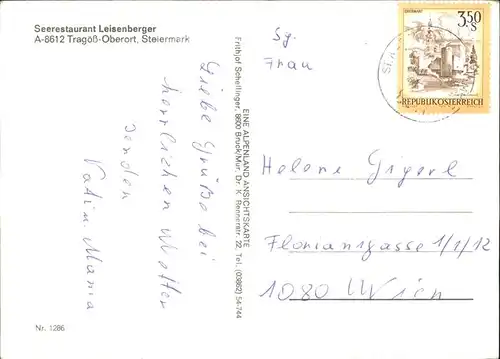 Seerestaurant Leisenberger
A-8612 Tragöß-Oberort, Steiermark
Liebe Grüße bei
herrlichen Wetter
senden
Mama
Nr. 1286
EINE ALPENLAND ANSICHTSKARTE
Frithjof Schellinger, 8600 Bruck/Mur, Dr. K. Rennerstr. 22, Tel. (03862) 54-744
3.50
S
REPUBLIK ÖSTERREICH
Sg.
Frau
Helene Gigerl
Florianigasse 1/1/12
1080 Wien